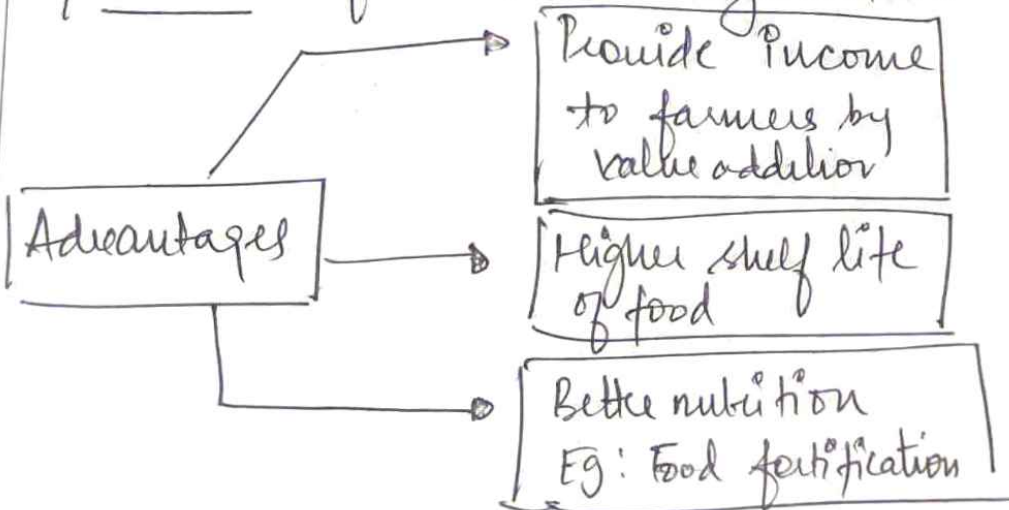 Advantages
Provide income
to farmers by
value addition
Higher shelf life
of food
Better nutrition
Eg: Food fortification